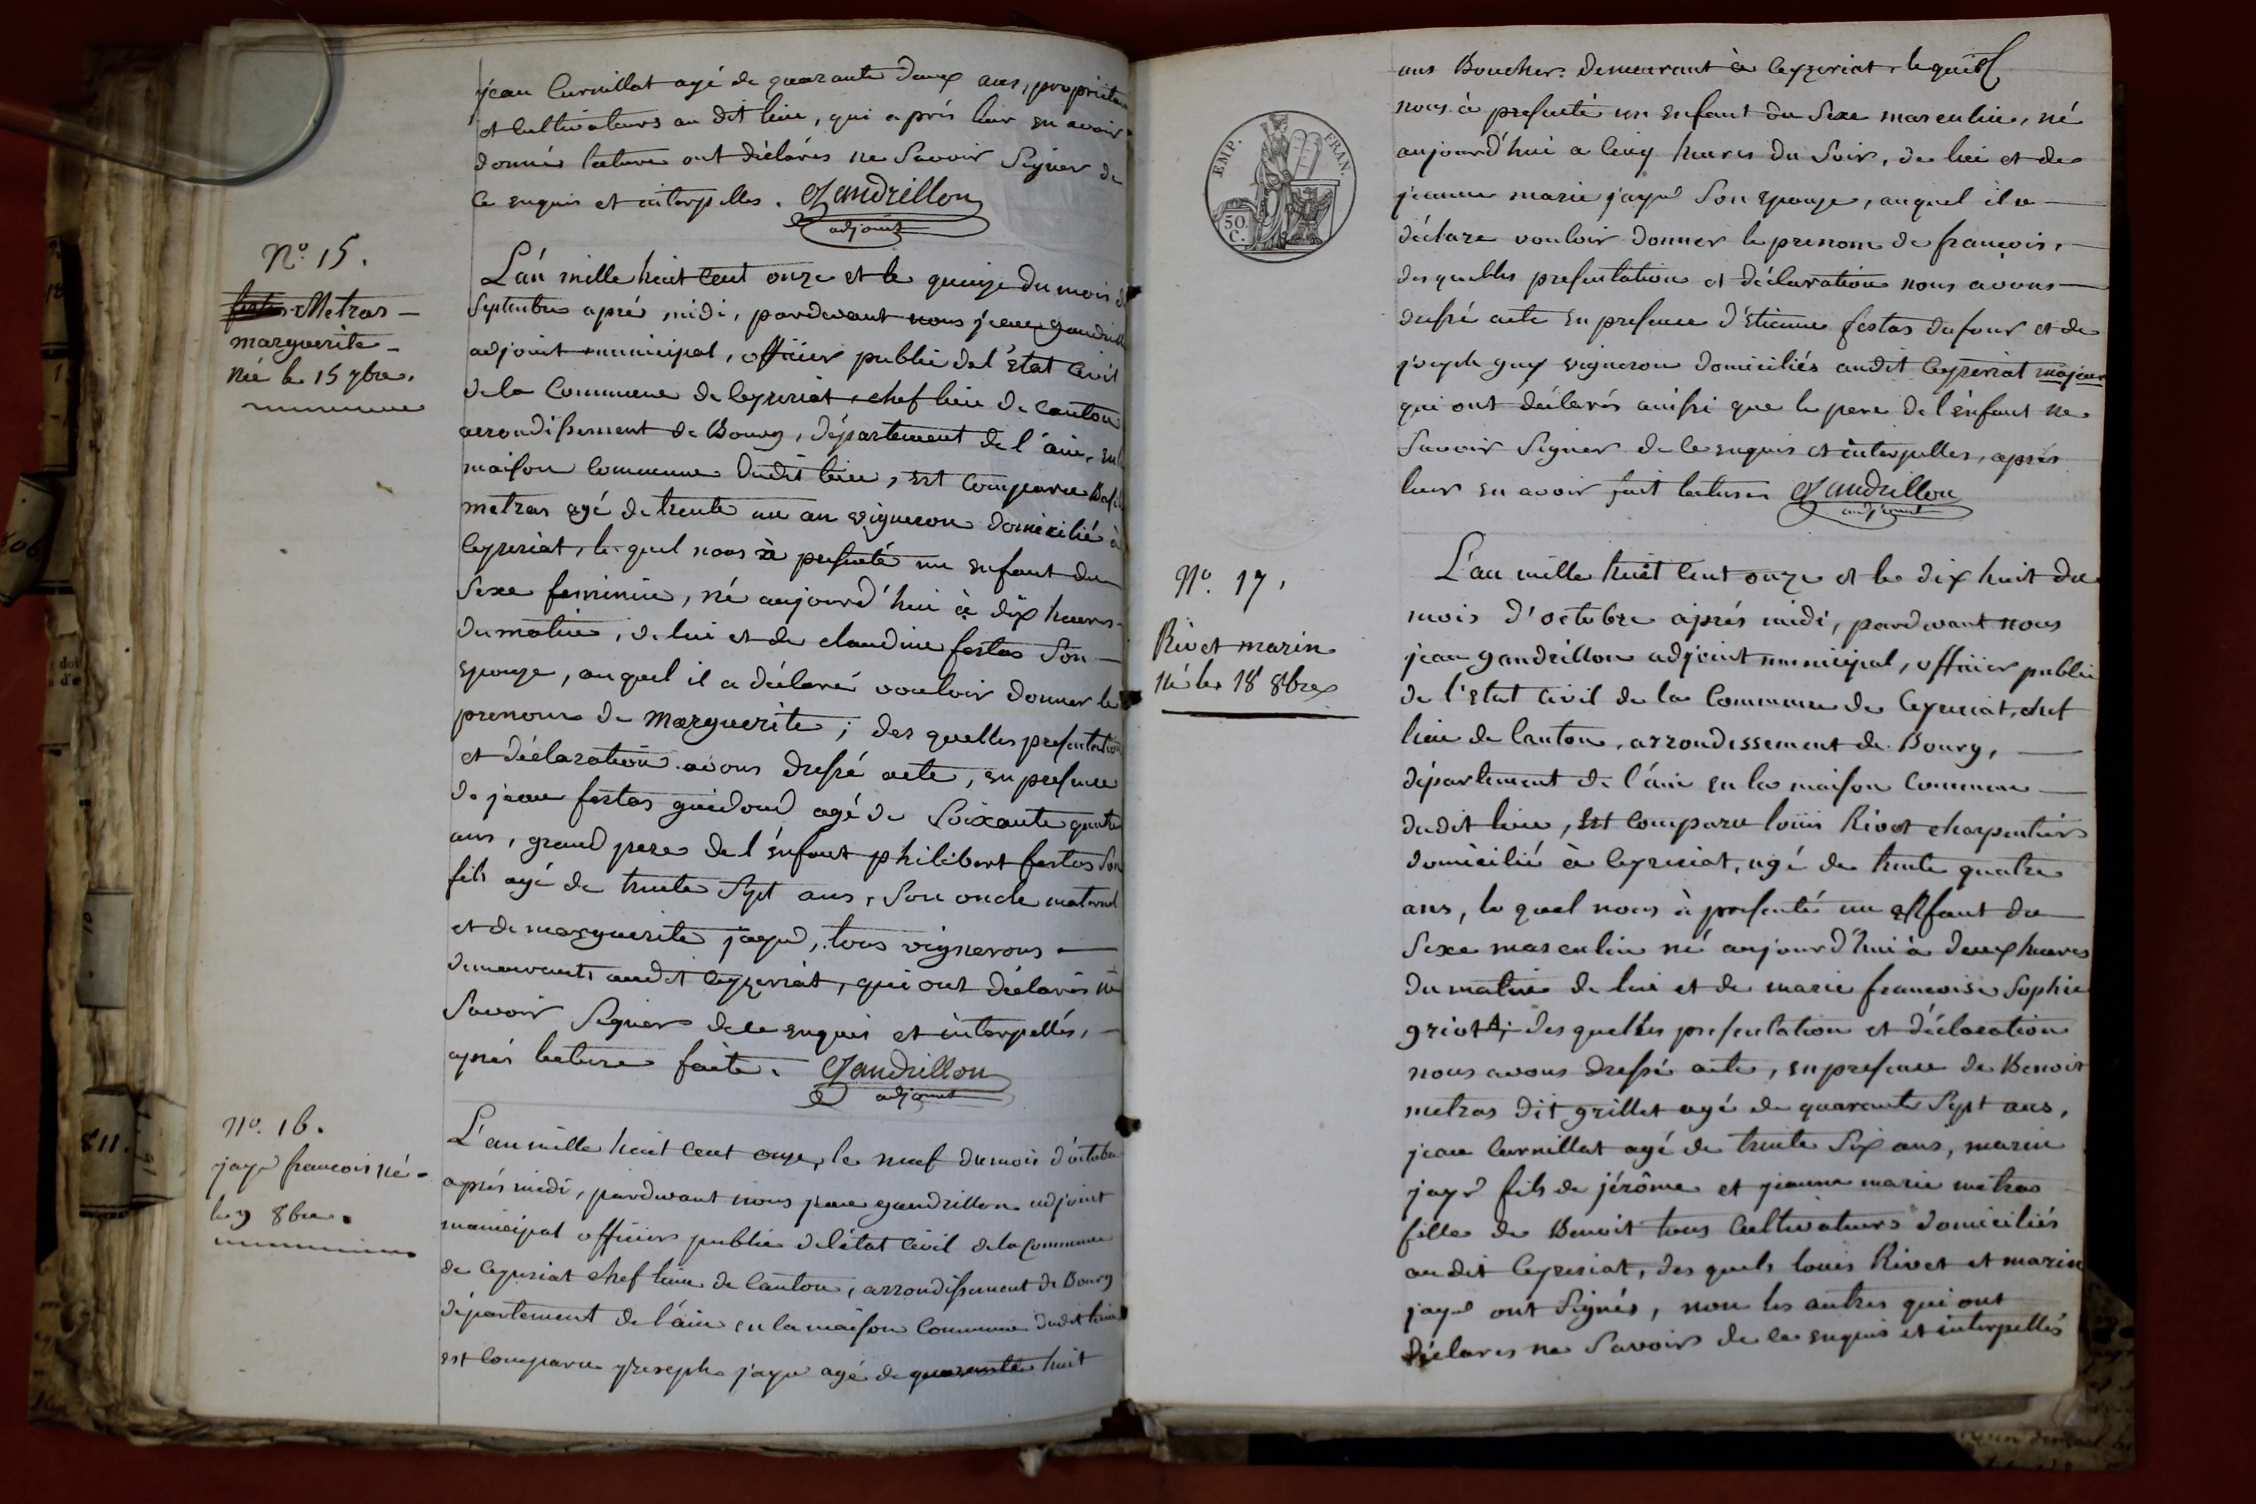 jean Curnillat agé de quarante deux ans, proprietaires
et Cultivateurs au dit lieu, qui après leur en avoir
donné lecture ont déclarés ne Savoir Signer de
Ce enquis et interpellés. Gandrillon
adjoint
N.º 15.
Metras
marguerite
née le 15 7bre.
L'an mille huit Cent onze et le quinze du mois de
Septembre aprés midi, pardevant nous jean gandrillon
adjoint municipal, officier public de l'Etat Civil
de la Commune de Ceyzeriat, chef lieu de canton
arrondissement de Bourg, département de l'ain, en la
maison Commune dudit lieu, est Comparu
metras agé de trente un an vigneron domicilié à
Ceyzeriat, le quel nous à presenté un enfant du
Sexe feminin, né aujourd'hui à dix heures
du matin, de lui et de claudine festas Son
epouze, auquel il a déclaré vouloir donner le
prenom de Marguerite; des quelles presentation
et déclaration avons dressé acte, en presence
de jean festas guidoud agé de Soixante quatre
ans, grand pere de l'énfant philibert festas Son
fils agé de trente Sept ans, Son oncle maternel
et de marguerite jayr, tous vignerons
demeurants audit Ceyzeriat, qui ont déclarés ne
Savoir Signer de ce enquis et interpellés,
aprés lecture faite. Gandrillon
adjoint
Nº. 16.
jayr francois né
le 9 8bre.
L'an mille huit Cent onze, le neuf du mois d'octobre
aprés midi, pardevant nous jean gandrillon adjoint
municipal officier public de l'état Civil de la Commune
de Ceyzeriat chef lieu de Canton, arrondissement de Bourg
département de l'ain en la maison Commune dudit lieu
est Comparu joseph jayr agé de quarante huit
EMP. FRAN.
50 C.
ans Boucher demeurant à Ceyzeriat, lequel
nous à presenté un enfant du Sexe masculin, né
aujourd'hui a Cinq heures du Soir, de lui et de
jeanne marie jayr Son epouze, auquel il a
déclaré vouloir donner le prenom de francois,
des quelles presentation et déclaration nous avons
dressé acte en presence d'Etienne festas dufour et de
joseph guy vigneron domiciliés audit Ceyzeriat majeurs
qui ont déclarés ainssi que le pere de l'énfant ne
Savoir Signer de Ce enquis et interpellés, aprés
leur en avoir fait lecture Gandrillon
adjoint
Nº. 17.
Rivet marin
né le 18 8bre
L'an mille huit Cent onze et le dix huit du
mois d'octobre aprés midi, pardevant nous
jean gandrillon adjoint municipal, officier public
de l'Etat Civil de la Commune de Ceyzeriat, chef
lieu de Canton, arrondissement de Bourg,
département de l'ain en la maison Commune
dudit lieu, Est Comparu louis Rivet charpentier
domicilié à Ceyzeriat, agé de trente quatre
ans, le quel nous à presenté un enfant du
Sexe masculin né aujourd'hui à deux heures
du matin de lui et de marie francoise Sophie
griot; des quelles presentation et déclaration
nous avons dressé acte, en presence de Benoit
metras dit grillet agé de quarante Sept ans,
jean Curnillat agé de trente Six ans, marin
jayr fils de jérôme et jeanne marie metras
fille de Benoit tous Cultivateurs domiciliés
au dit Ceyzeriat, des quels louis Rivet et marin
jayr ont Signés, non les autres qui ont
déclarés ne Savoir de ce enquis et interpellés
811.